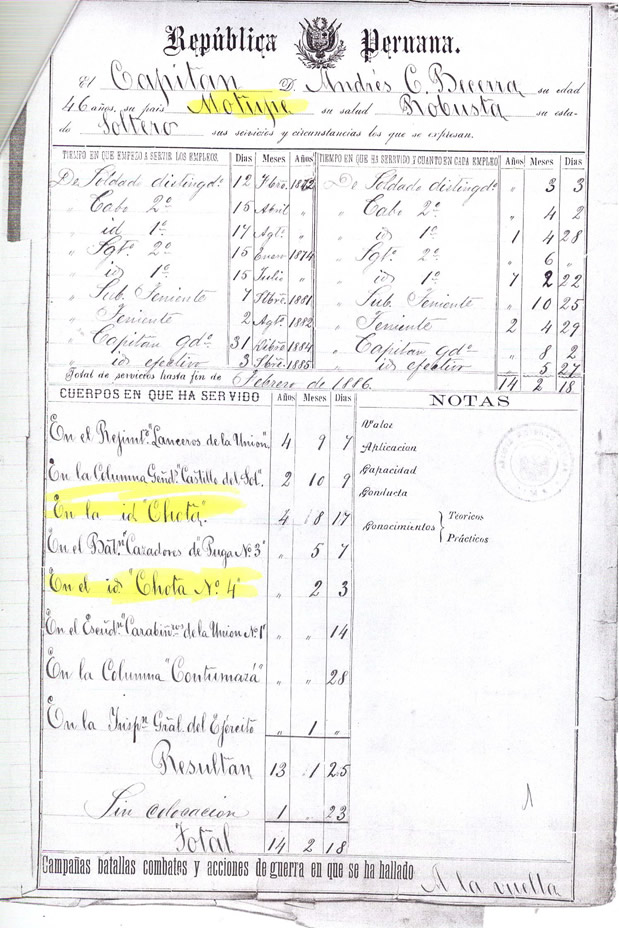 República Peruana.
El Capitan D. Andrés C. Becerra su edad
46 años, su pais Motupe su salud Robusta su esta-
do Soltero sus servicios y circunstancias los que se expresan.
TIEMPO EN QUE EMPEZÓ A SERVIR LOS EMPLEOS. Dias Meses Años
De Soldado distingdo. 12 Fbro. 1872
" Cabo 2º 15 Abril "
" id 1º 17 Agto. "
" Sgto. 2º 15 Enero 1874
" id 1º 15 Julio "
" Sub. Teniente 7 1881
" Teniente 2 Agto. 1882
" Capitan gdo. 31 1884
" id efectivo 3 1885
TIEMPO EN QUE HA SERVIDO Y CUANTO EN CADA EMPLEO Años Meses Dias
De Soldado distingdo. " 3 3
" Cabo 2º " 4 2
" id 1º 1 4 28
" Sgto. 2º " 6 "
" id 1º 7 2 22
" Sub. Teniente " 10 25
" Teniente 2 4 29
" Capitan gdo. " 8 2
" id efectivo " 5 27
Total de servicios hasta fin de Febrero de 1886. 14 2 18
CUERPOS EN QUE HA SERVIDO Años Meses Dias
En el Rejimto. "Lanceros de la Union". 4 9 7
En la Columna Gend. "Castillo del Sol". 2 10 9
En la id "Chota". 4 8 17
En el Batn. "Cazadores de Puga Nº 3" " 5 7
En el id "Chota Nº 4" " 2 3
En el Escudn. "Carabinros de la Union Nº 1" " " 14
En la Columna "Contumazá" " " 28
En la Inspn. Gral. del Ejército " 1 "
Resultan 13 1 25
Sin colocacion 1 " 23
Total 14 2 18
NOTAS
Valor
Aplicacion
Capacidad
Conducta
Conocimientos { Teoricos
Prácticos
Campañas batallas combates y acciones de guerra en que se ha hallado
A la vuelta